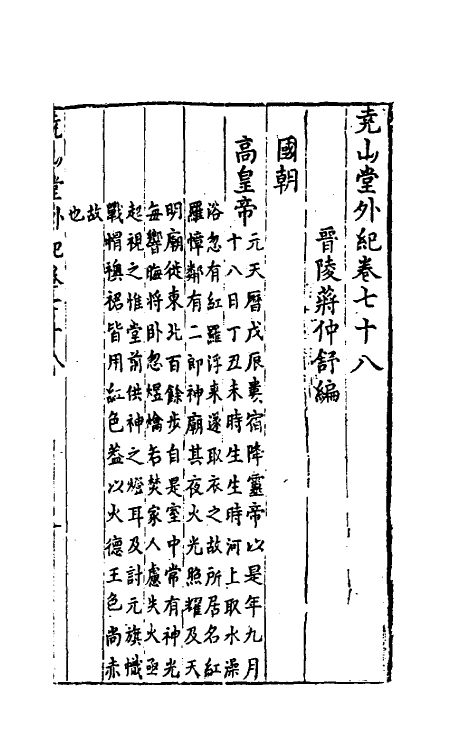 堯山堂外紀卷七十八
晉陵蔣仲舒編
國朝
高皇帝
元天曆戊辰婁宿降靈帝以是年九月
十八日丁丑未時生生時河上取水澡
浴忽有紅羅浮來遂取衣之故所居名紅
羅幛鄰有二郎神廟其夜火光照耀及天
明廟徙東北百餘步自是室中常有神光
每嚮晦將卧忽煜爚若焚家人慮失火亟
起視之惟堂前供神之燈耳及討元旗幟
戰帽襖裙皆用紅色葢以火德王色尚赤
故
也
堯山堂外紀卷七十八